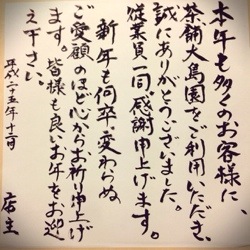 本年も多くのお客様に、
茶舗大島園をご利用いただき、
誠にありがとうございました。
従業員一同、感謝申上げます。
新年も何卒、変わらぬ
ご愛顧のほど心からお祈り申上げ
ます。皆様も良いお年をお迎
え下さい。
平成二十五年十二月
店主